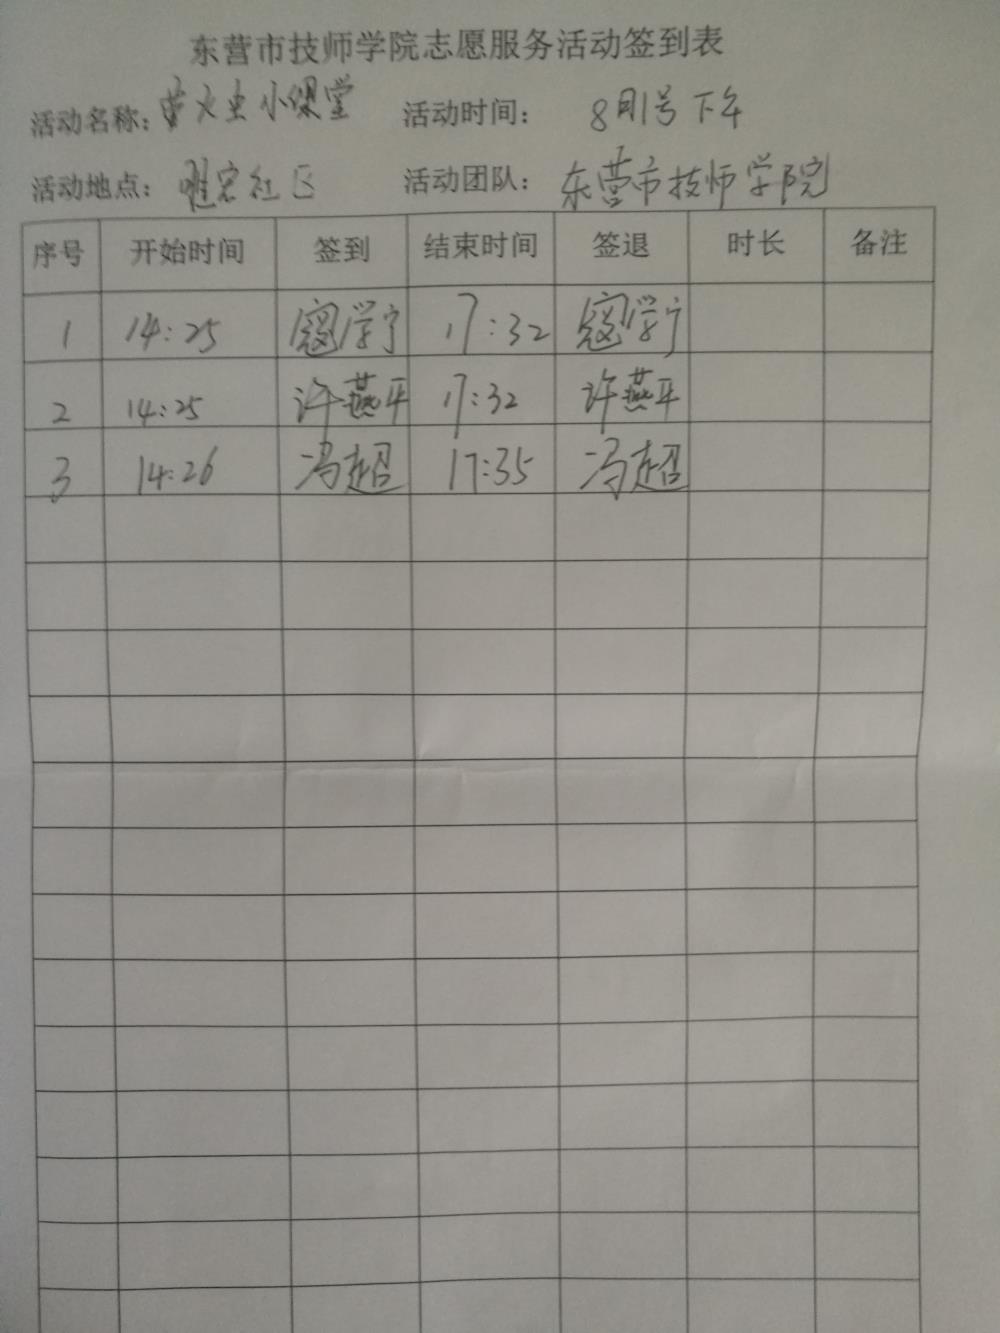 东营市技师学院志愿服务活动签到表
活动名称：萤火虫小课堂 活动时间： 8月1号下午
活动地点： 社区 活动团队： 东营市技师学院
序号 开始时间 签到 结束时间 签退 时长 备注
1 14:25 寇学宁 17:32 寇学宁
2 14:25 许燕平 17:32 许燕平
3 14:26 冯超 17:35 冯超